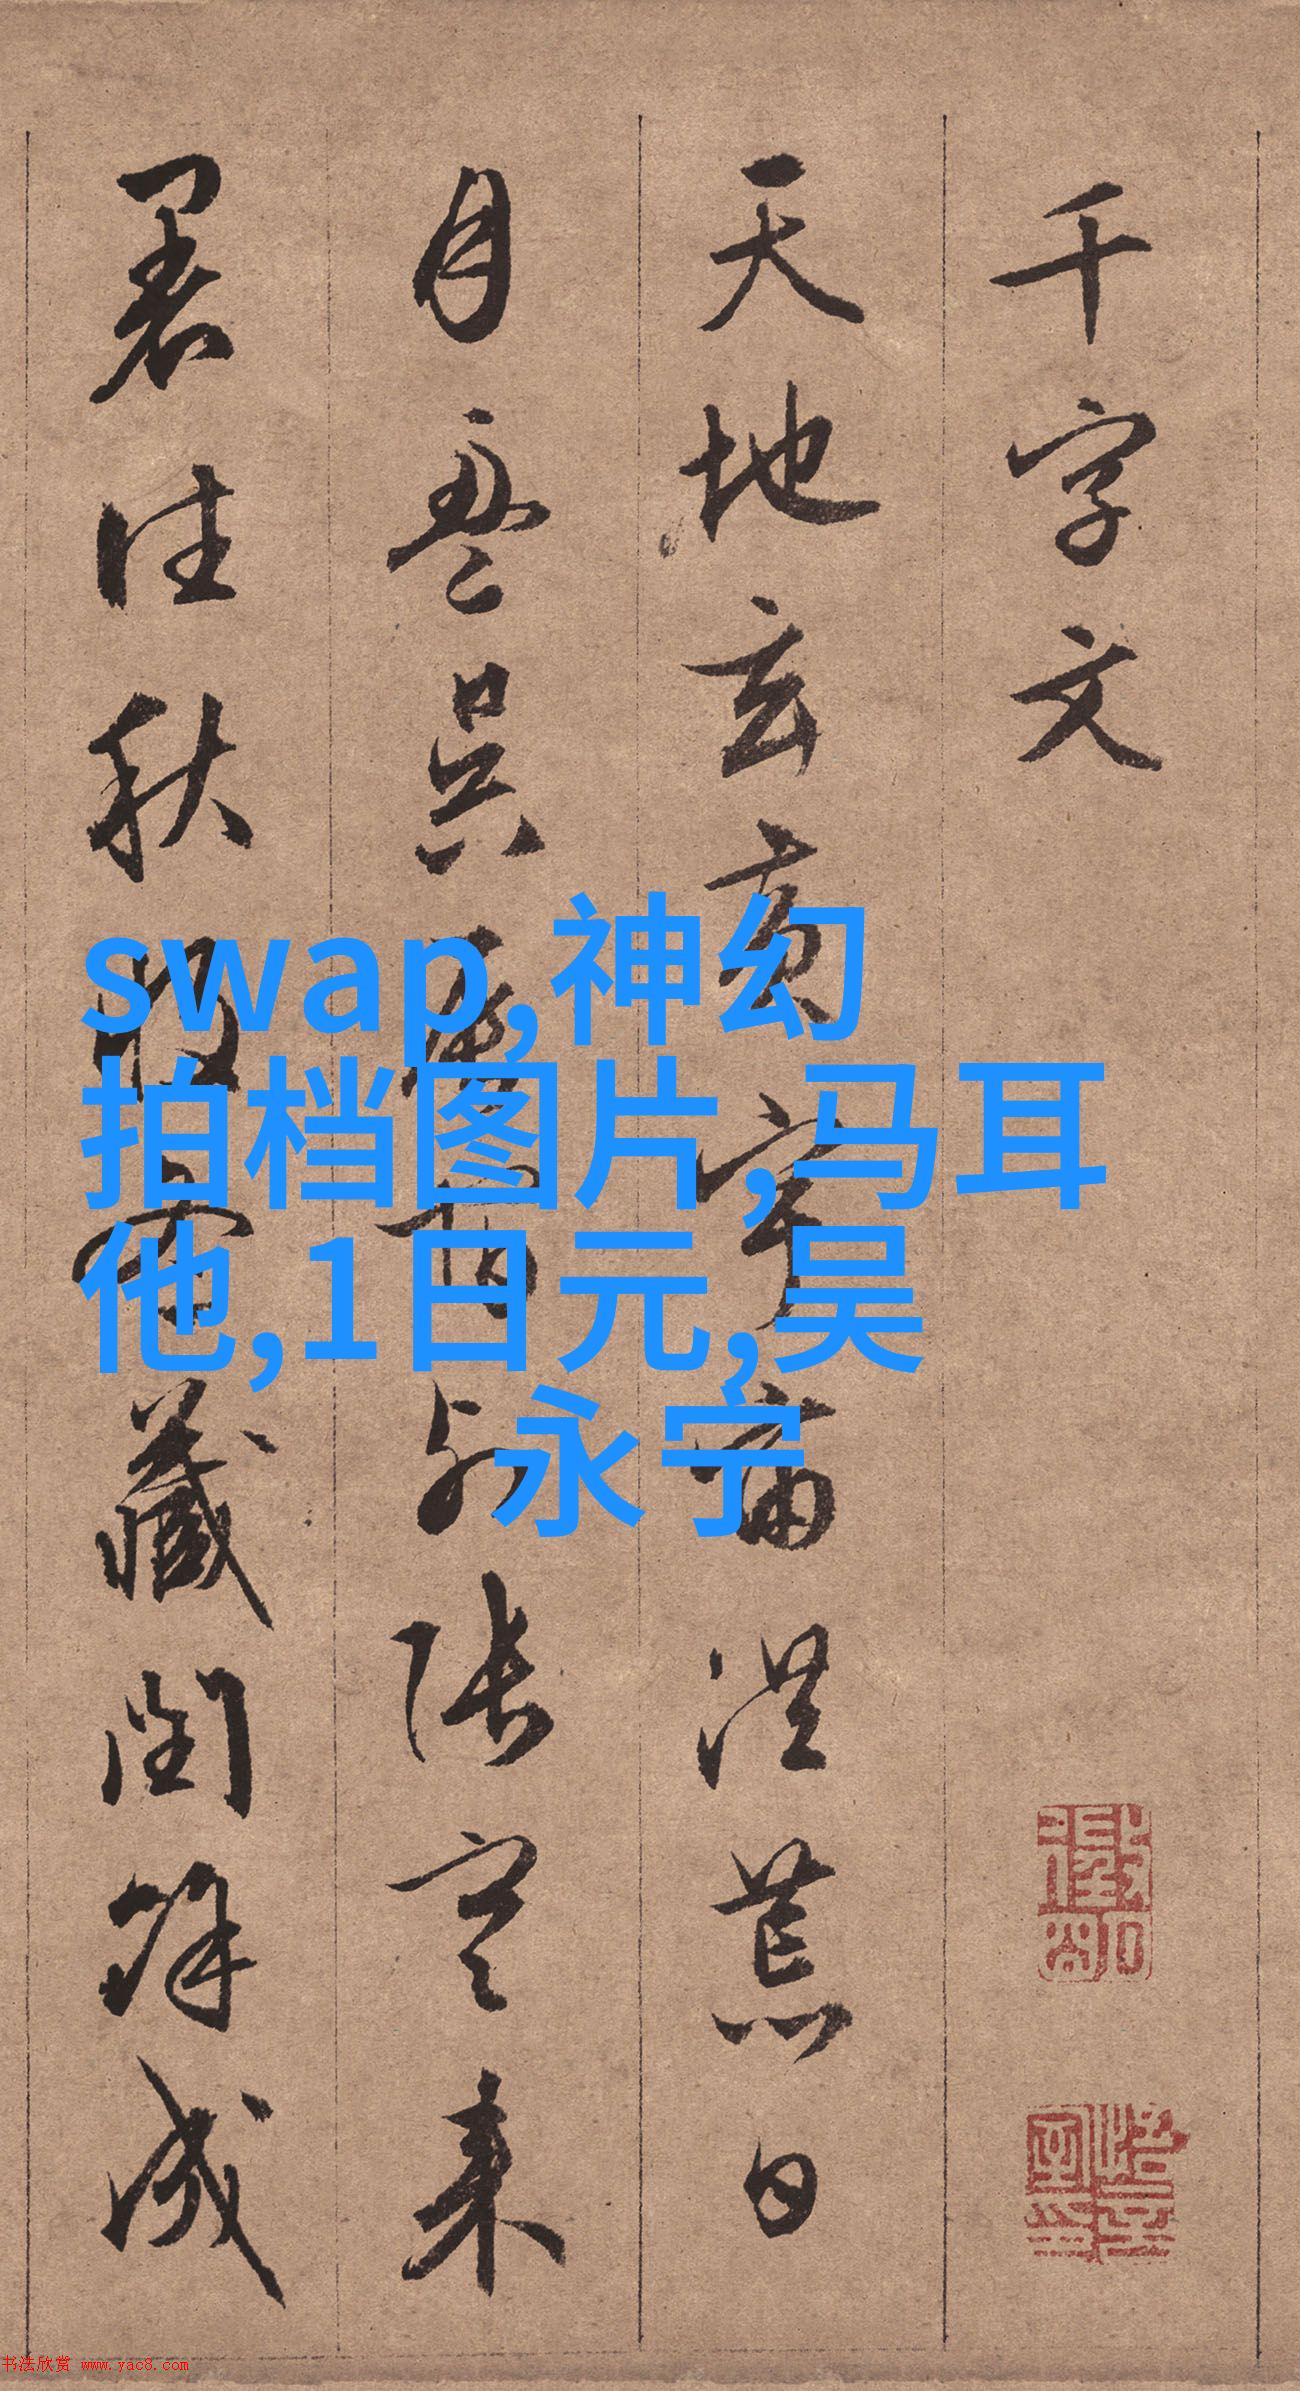 千字文
天地玄黄宇宙洪荒日
月盈昃辰宿列張寒来
暑往秋收冬藏閏餘成
swap,神幻
拍档图片,马耳
他,1日元,吴
永宁
书法欣赏 www.yac8.com